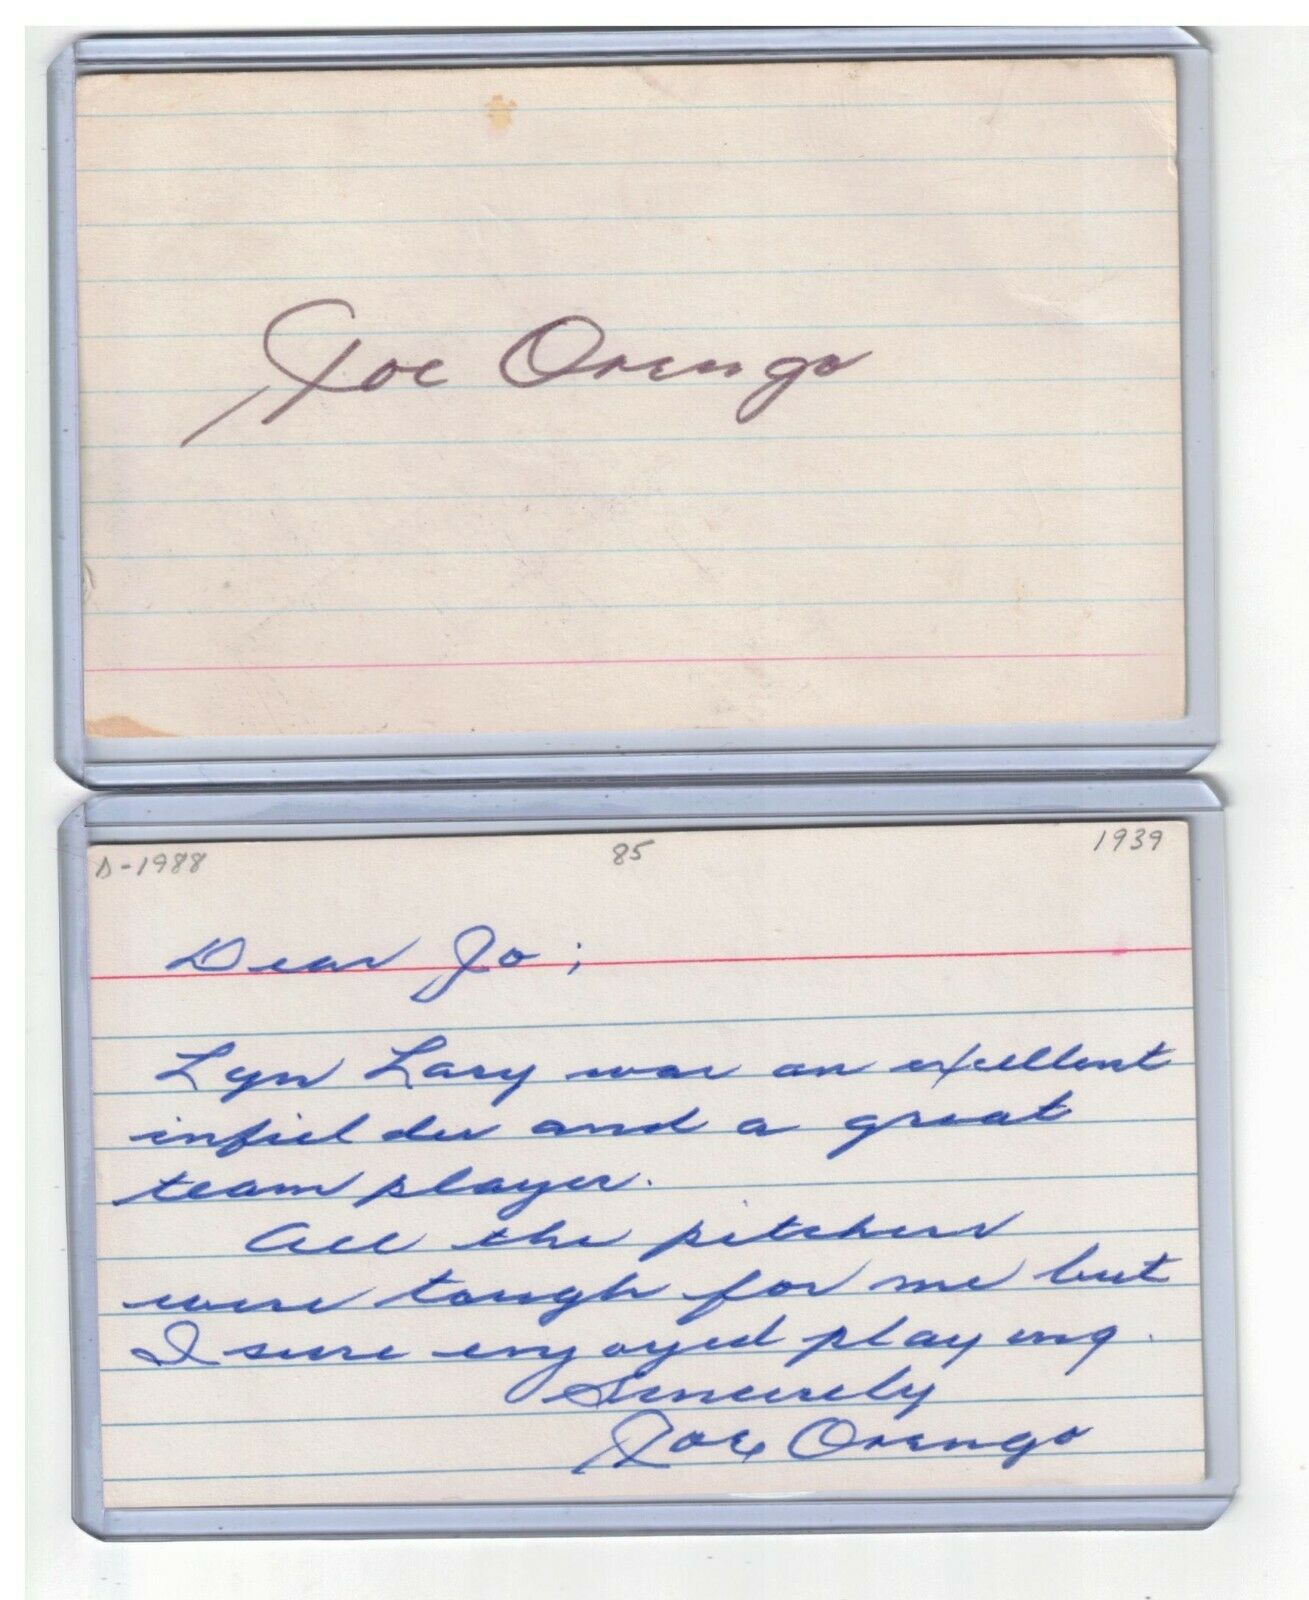 Joe Orengo
D-1988 85 1939
Dear Jo;
Lyn Lary was an excellent
infielder and a great
team player.
All the pitchers
were tough for me but
I sure enjoyed playing.
Sincerely
Joe Orengo